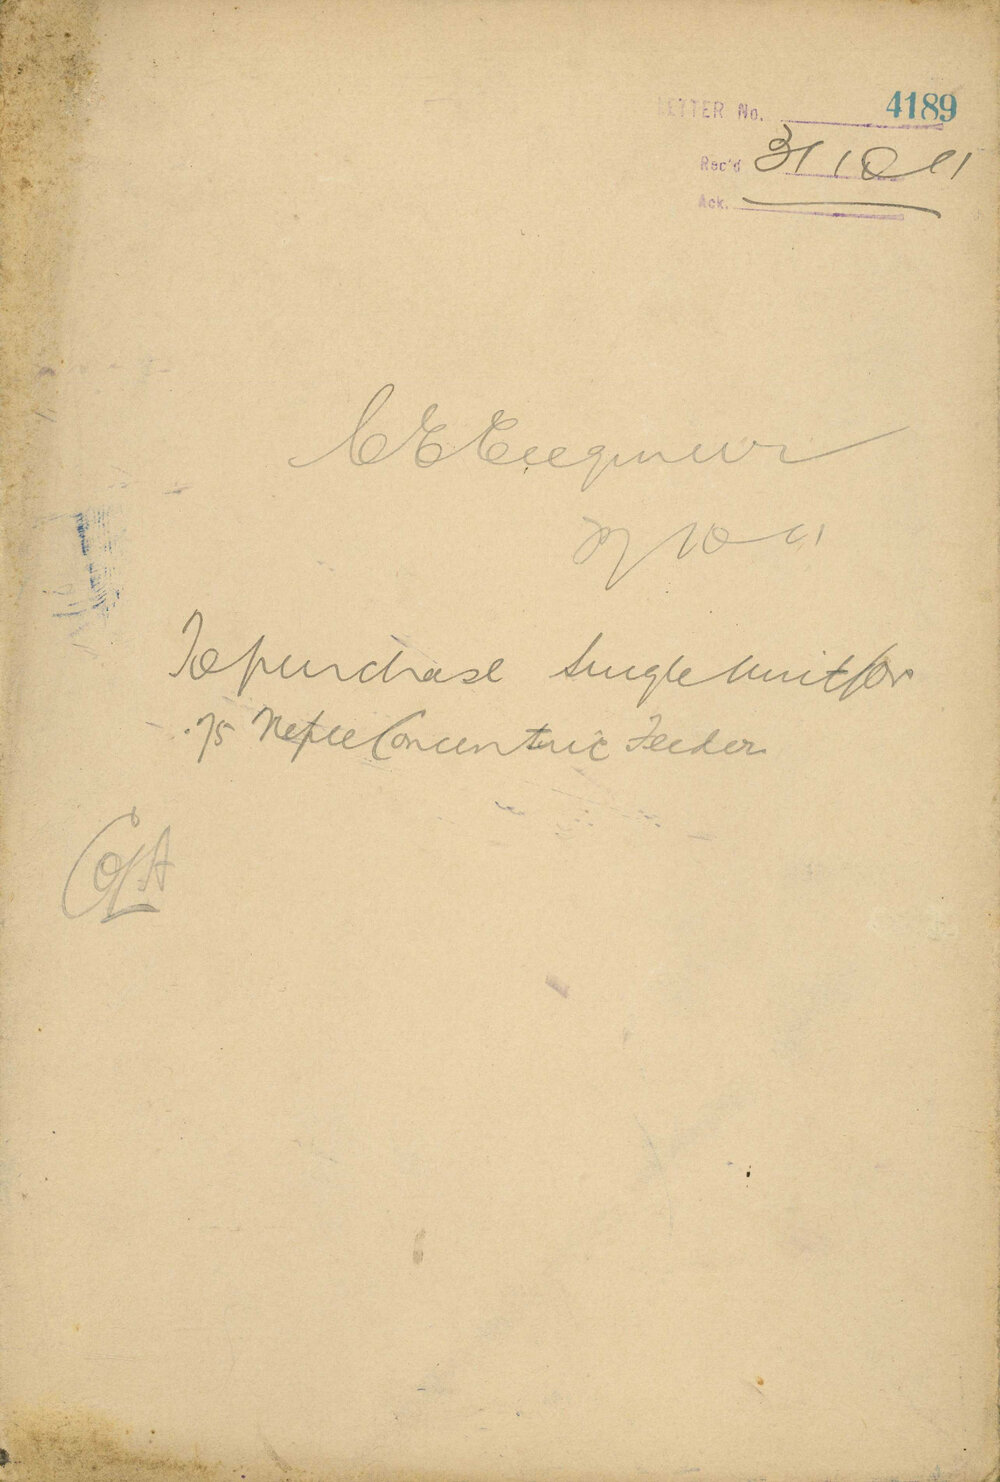 LETTER No. 4189
Rec'd 31 10 11
Ack.
C E Engineer
10 11
To purchase Single Unit for
.75 Triple Concentric Feeder